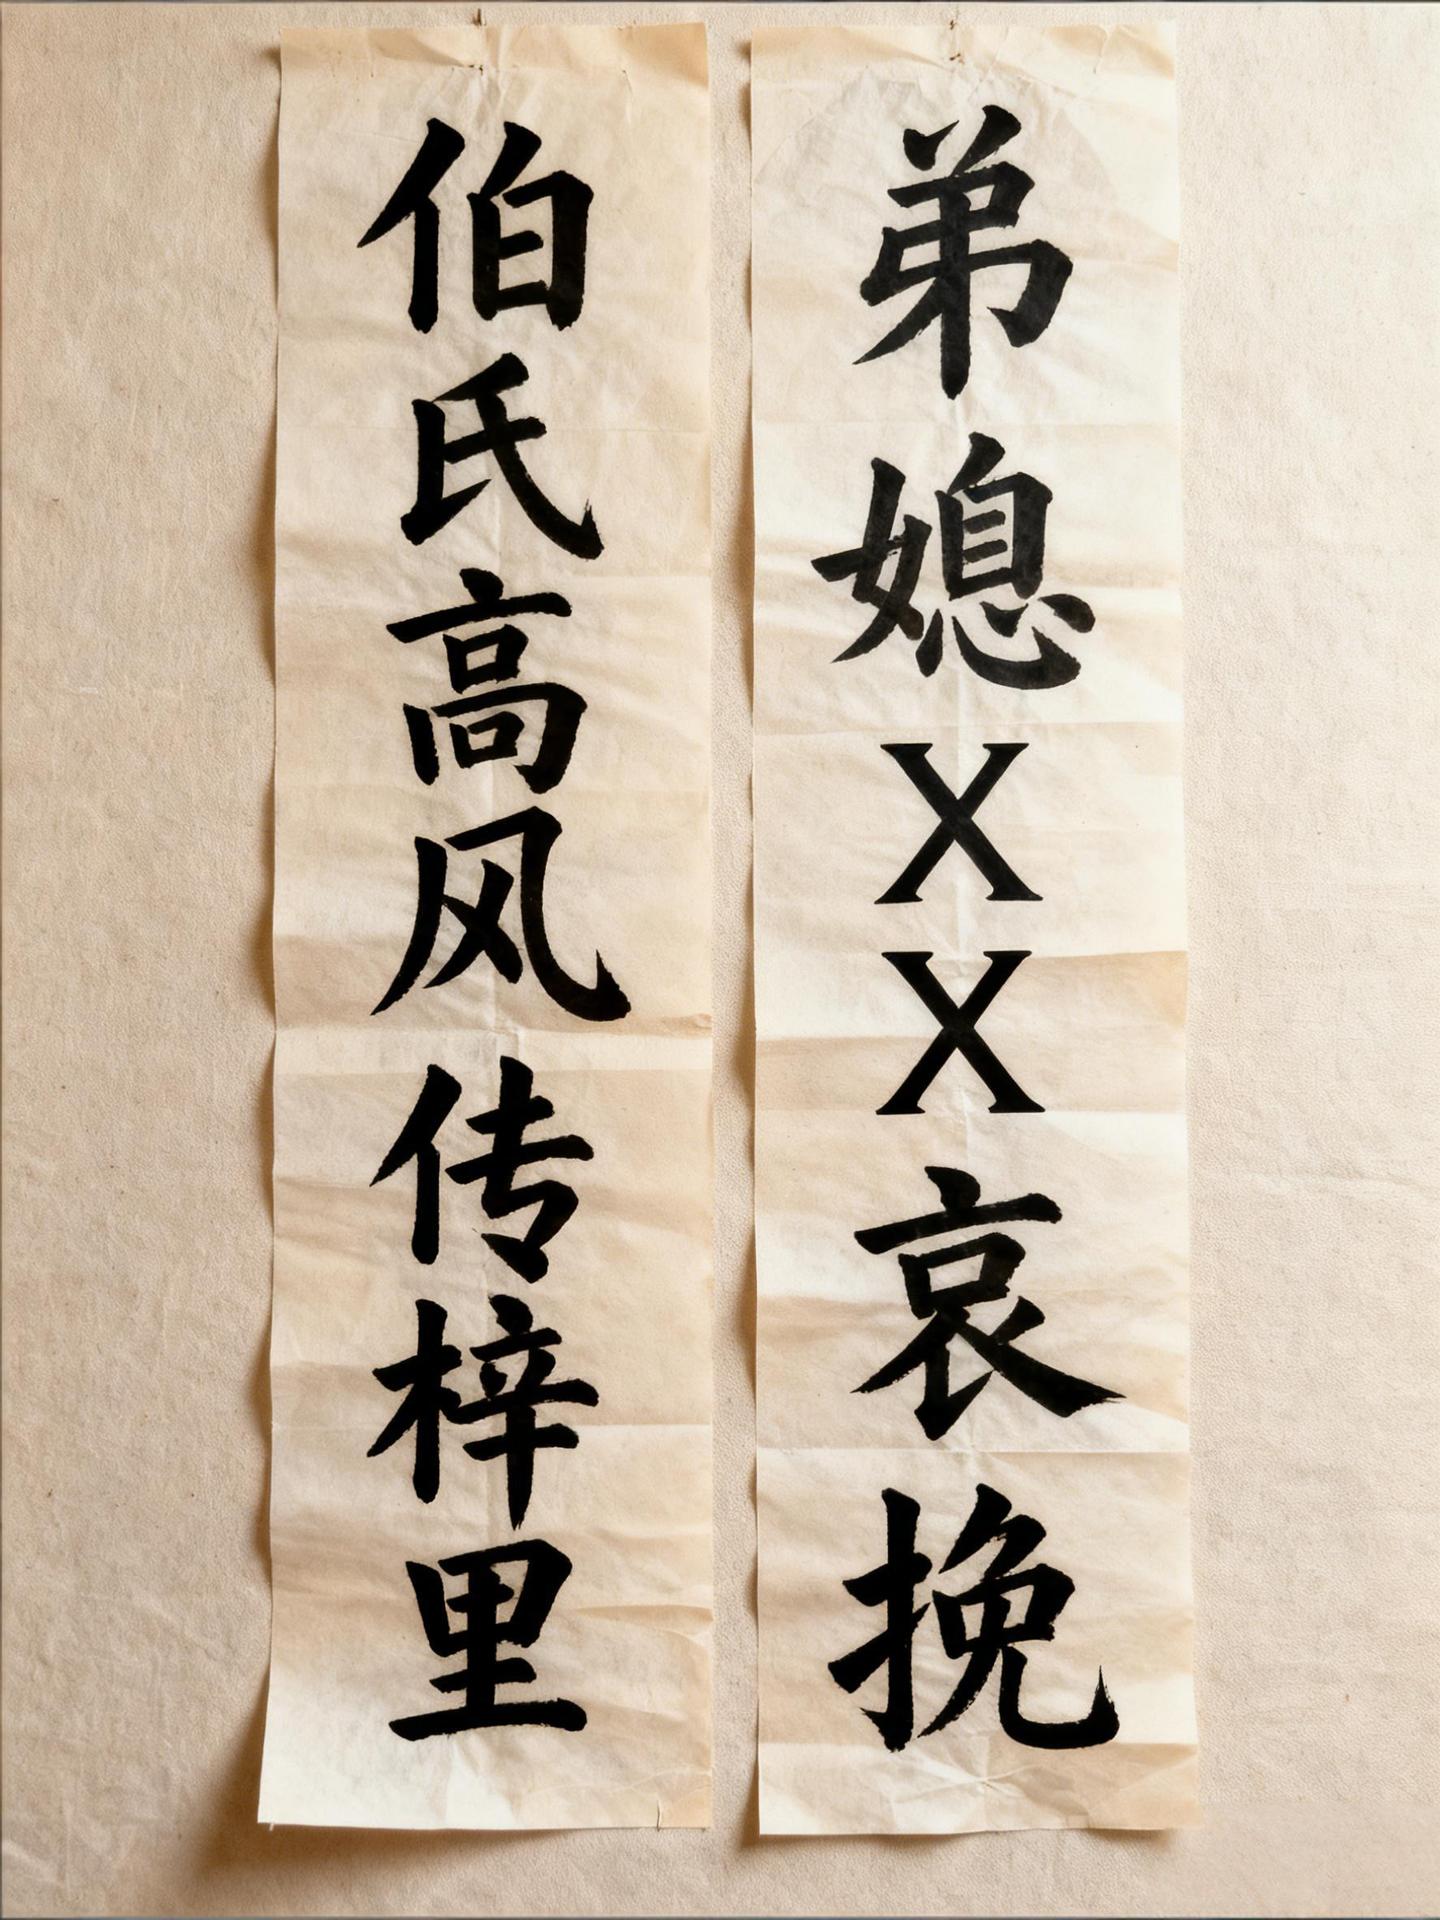 弟媳XX哀挽
伯氏高风传梓里